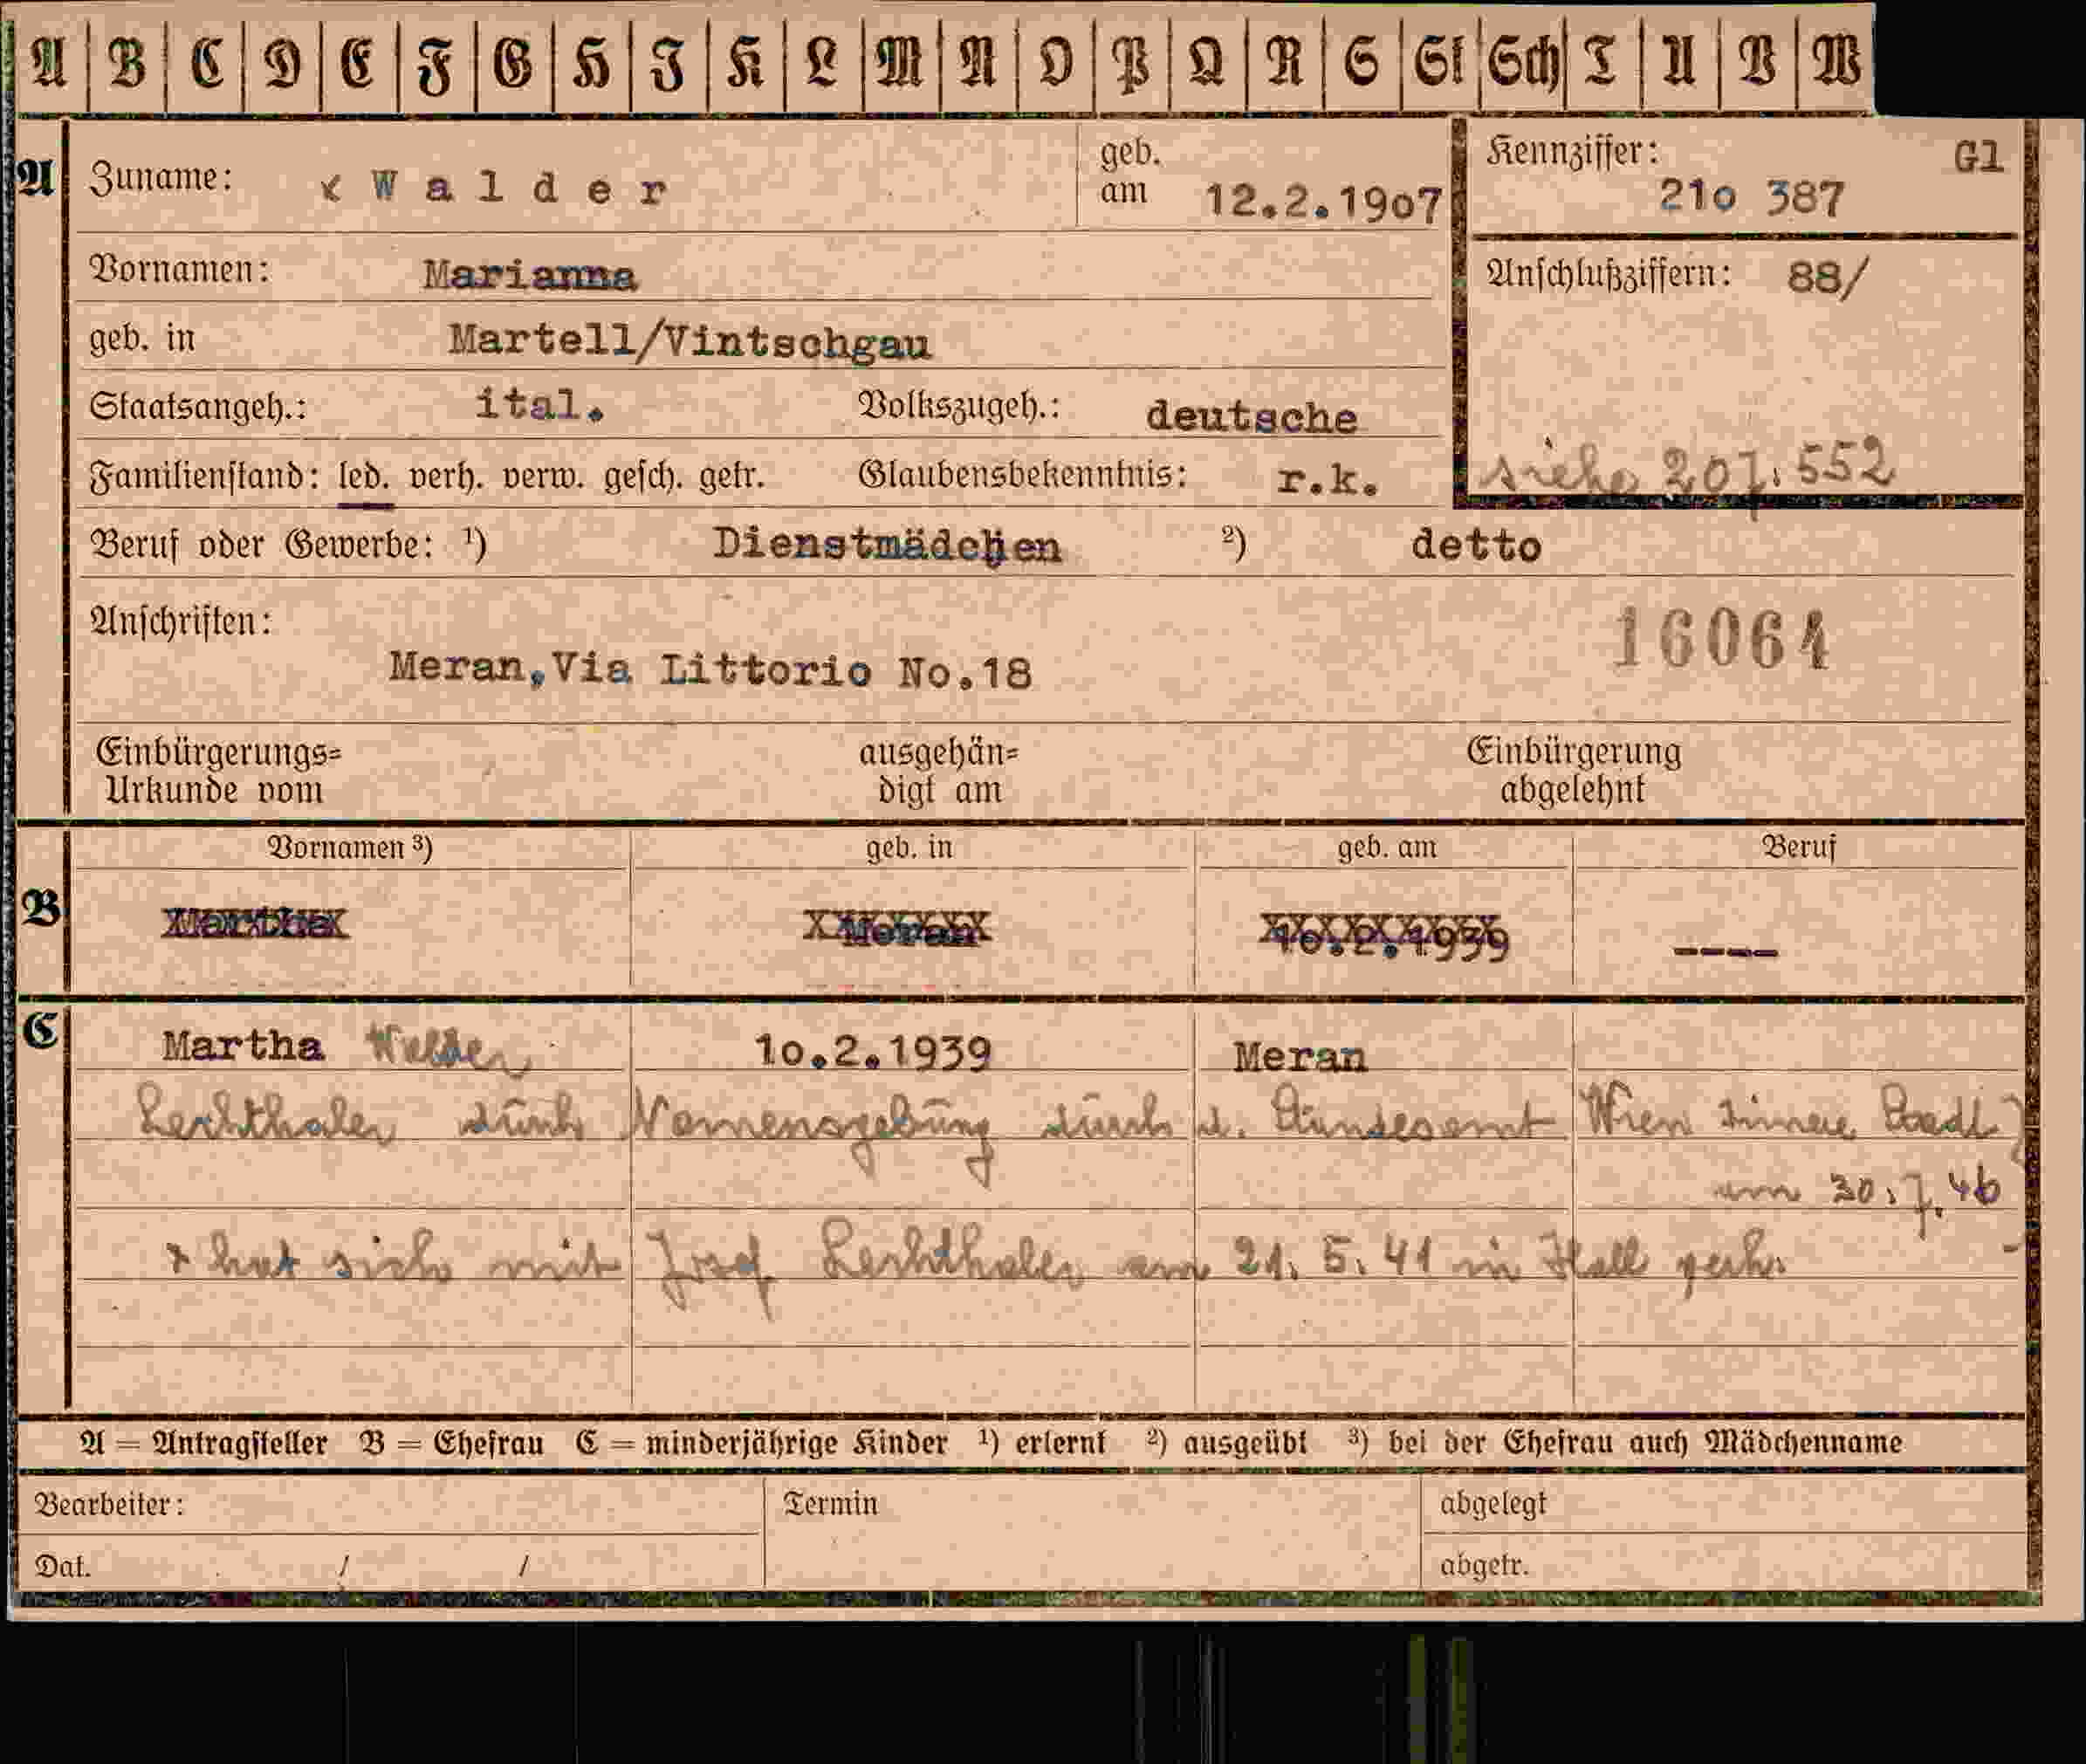 A B C D E F G H I K L M N O P Q R S St Sch T U V W
A Zuname: x W a l d e r geb. am 12.2.1907 Kennziffer: 21o 387 Gl
Vornamen: Marianna Anschlußziffern: 88/
geb. in Martell/Vintschgau
Staatsangeh.: ital. Volkszugeh.: deutsche
Familienstand: led. verh. verw. gesch. getr. Glaubensbekenntnis: r.k. siehe 207.552
Beruf oder Gewerbe: ¹) Dienstmädchen ²) detto
Anschriften: 16064
Meran,Via Littorio No.18
Einbürgerungs= ausgehän= Einbürgerung
Urkunde vom digt am abgelehnt
Vornamen ³) geb. in geb. am Beruf
B Martha Meran 10.2.1939 ----
C Martha Walder 1o.2.1939 Meran
Lechthaler durch Namensgebung durch d. Standesamt Wien Innere Stadt
am 30.7.46
x hat sich mit Josef Lechthaler am 21.5.41 in Hall verh.
A = Antragsteller B = Ehefrau C = minderjährige Kinder ¹) erlernt ²) ausgeübt ³) bei der Ehefrau auch Mädchenname
Bearbeiter: Termin abgelegt
Dat. / / abgetr.